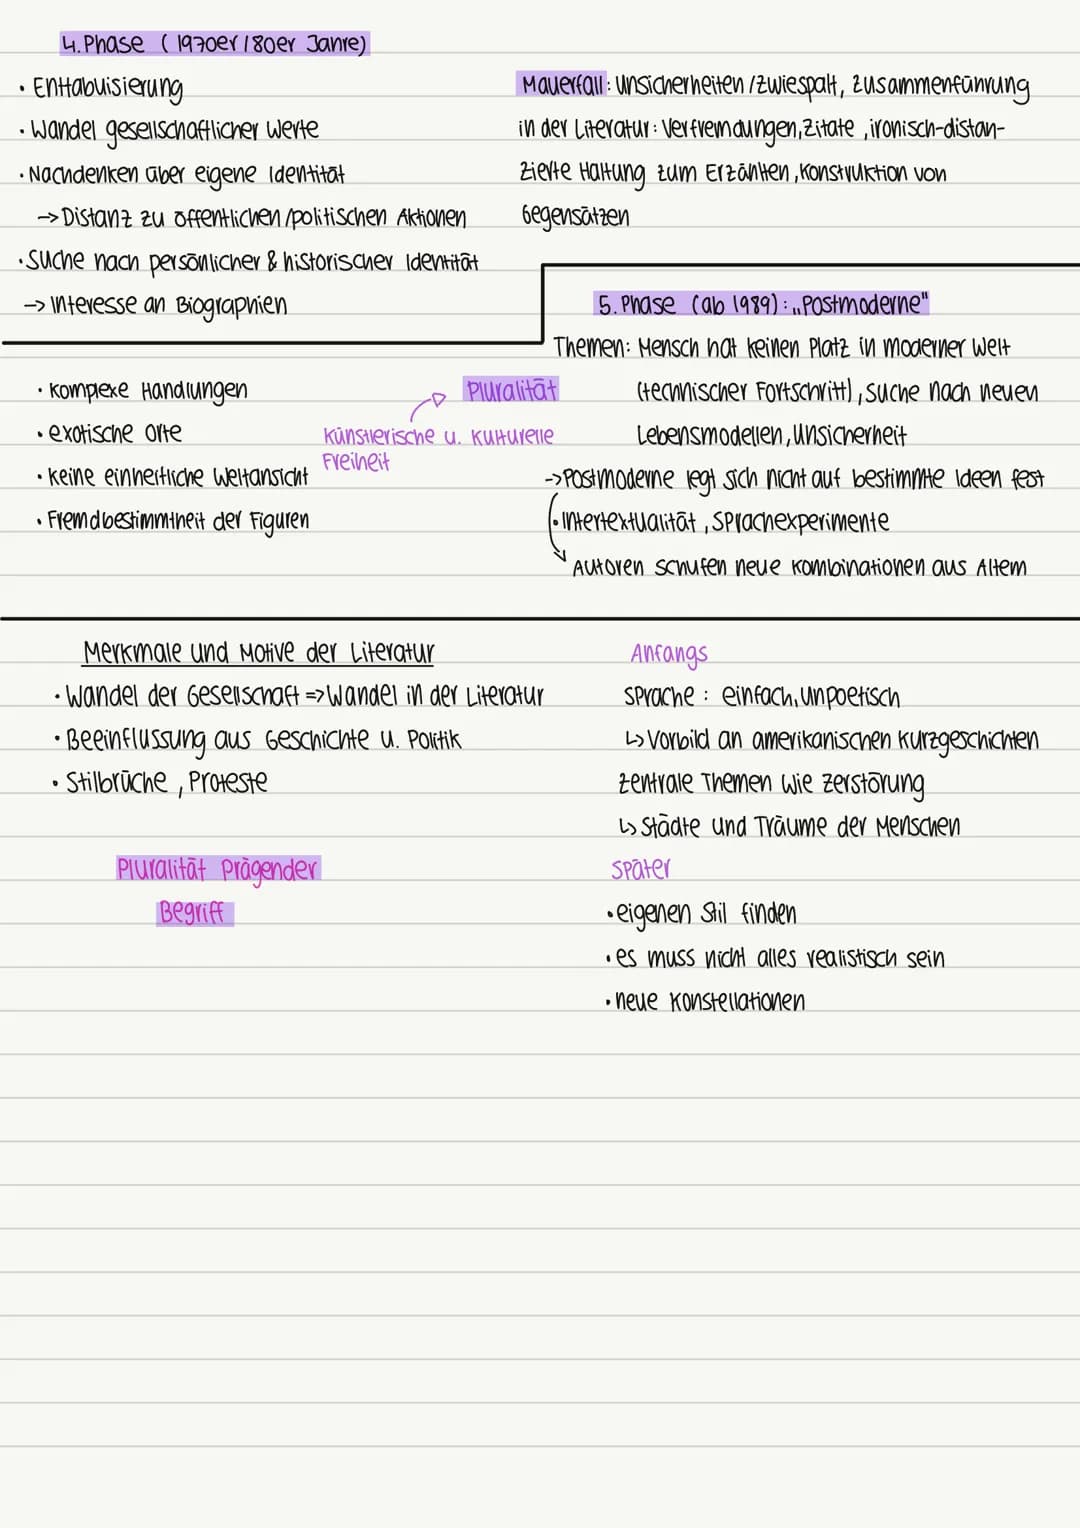 4. Phase (1970er/80er Jahre)
• Enttabuisierung
• Wandel gesellschaftlicher Werte
• Nachdenken über eigene Identität
-> Distanz zu öffentlichen/politischen Aktionen
• Suche nach persönlicher & historischer Identität
-> Interesse an Biographien
Mauerfall: Unsicherheiten/Zwiespalt, Zusammenführung
in der Literatur: Verfremdungen, Zitate, ironisch-distan-
zierte Haltung zum Erzählten, Konstruktion von
Gegensätzen
5. Phase (ab 1989): „Postmoderne"
Themen: Mensch hat keinen Platz in moderner Welt
(technischer Fortschritt), Suche nach neuen
Lebensmodellen, Unsicherheit
-> Postmoderne legt sich nicht auf bestimmte Ideen fest
• Intertextualität, Sprachexperimente
Autoren schufen neue Kombinationen aus Altem
• komplexe Handlungen
• exotische Orte
• keine einheitliche Weltansicht
• Fremdbestimmtheit der Figuren
Pluralität
Künstlerische u. kulturelle
Freiheit
Merkmale und Motive der Literatur
• Wandel der Gesellschaft => Wandel in der Literatur
• Beeinflussung aus Geschichte u. Politik
• Stilbrüche, Proteste
Pluralität Prägender
Begriff
Anfangs
Sprache: einfach, unpoetisch
↳ Vorbild an amerikanischen Kurzgeschichten
zentrale Themen wie Zerstörung
↳ Städte und Träume der Menschen
Später
• eigenen Stil finden
• es muss nicht alles realistisch sein
• neue Konstellationen